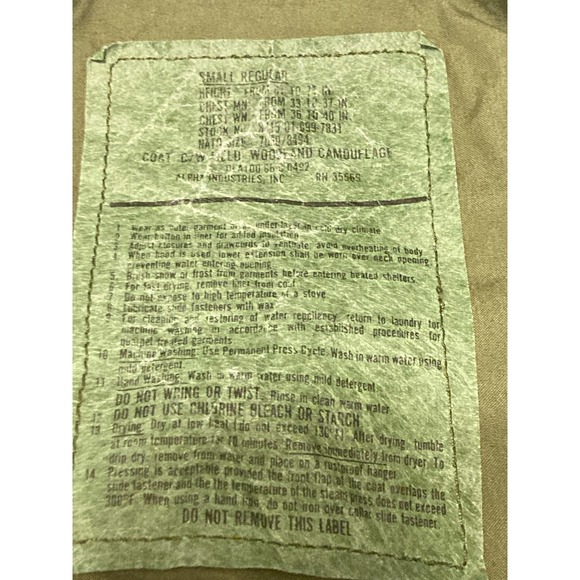 SMALL REGULAR
HEIGHT FROM TO IN.
CHEST MN. FROM 33 TO 37 IN.
CHEST WN. FROM 36 TO 40 IN.
STOCK NO. 8415-01-099-7831
NATO SIZE:
COAT, C/W FIELD, WOODLAND CAMOUFLAGE
ALPHA INDUSTRIES, INC. RN 35969
1 Wear as outer garment or as under layer in cold dry climate
2 Wear button in liner for added insulation
3 Adjust closures and drawcords to ventilate, avoid overheating of body
When hood is used, lower extension shall be worn over neck opening,
preventing water entering opening
5 Brush snow or frost from garments before entering heated shelters
6 For fast drying, remove liner from coat
7 Do not expose to high temperature of a stove
Lubricate slide fasteners with wax
9 For cleaning and restoring of water repellency, return to laundry for
machine washing in accordance with established procedures for
quarpel treated garments
10 Machine Washing: Use Permanent Press Cycle. Wash in warm water using
mild detergent.
11 Hand Washing: Wash in warm water using mild detergent.
DO NOT WRING OR TWIST. Rinse in clean warm water.
12 DO NOT USE CHLORINE BLEACH OR STARCH
13 Drying: Dry at low heat (do not exceed 130°F). After drying, tumble
at room temperature for 10 minutes. Remove immediately from dryer. To
drip dry, remove from water and place on a rustproof hanger.
14 Pressing is acceptable provided the front flap of the coat overlaps the
slide fastener and the the temperature of the steam press does not exceed
300°F. When using a hand iron, do not iron over collar slide fastener.
DO NOT REMOVE THIS LABEL